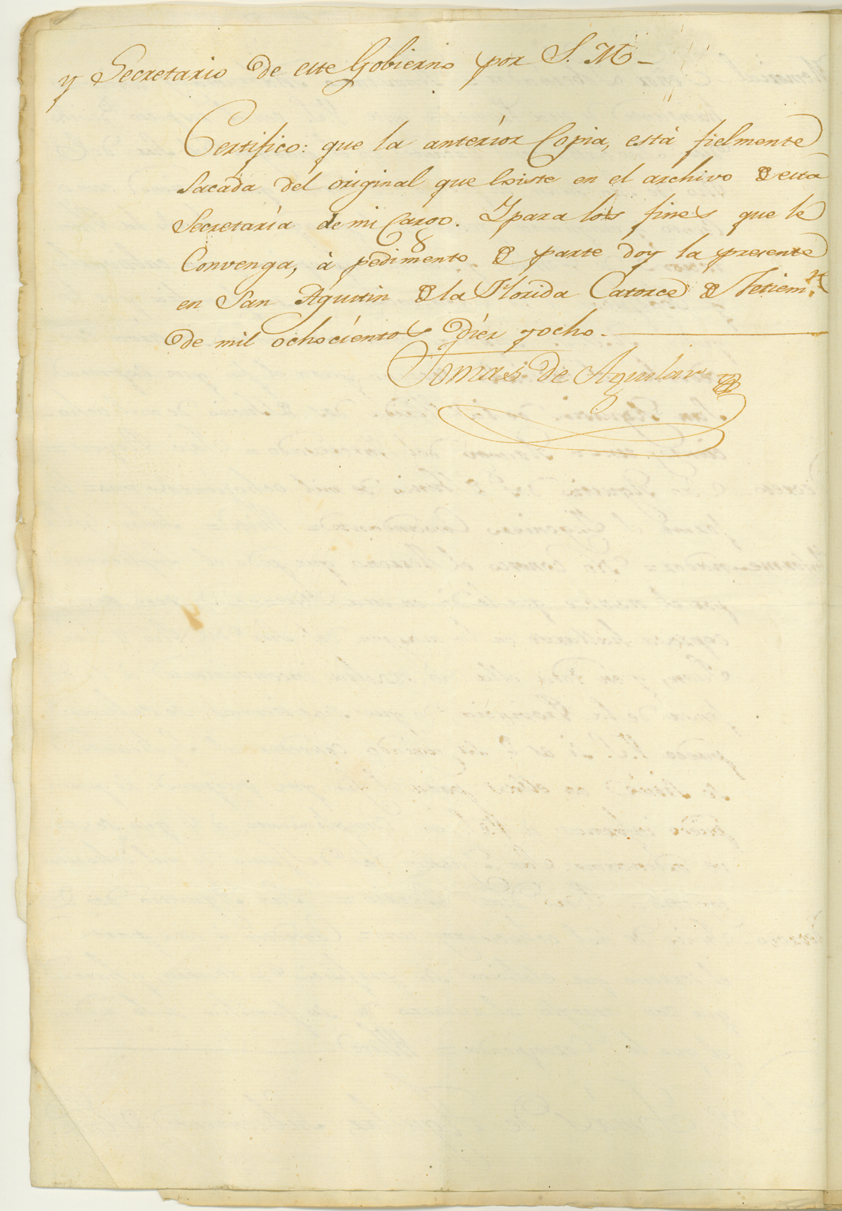 y Secretario de este Gobierno por S. M-
Certifico: que la anteríor Copia, está fielmente
sacada del original que Existe en el archivo de esta
Secretaría de mi cargo. Y para los fines que le
Convenga, à pedimento de parte doy la presente
en San Agustin de la Florida Catorce de Setiem.re
de mil ochocíentos díez yocho.
Tomas de Aguilar